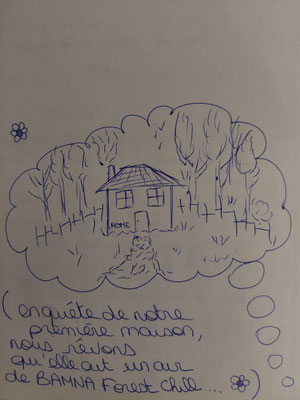 HOME
(enquête de notre
première maison,
nous rêvons
qu'elle ait un air
de BAMNA Forest Chill ... )